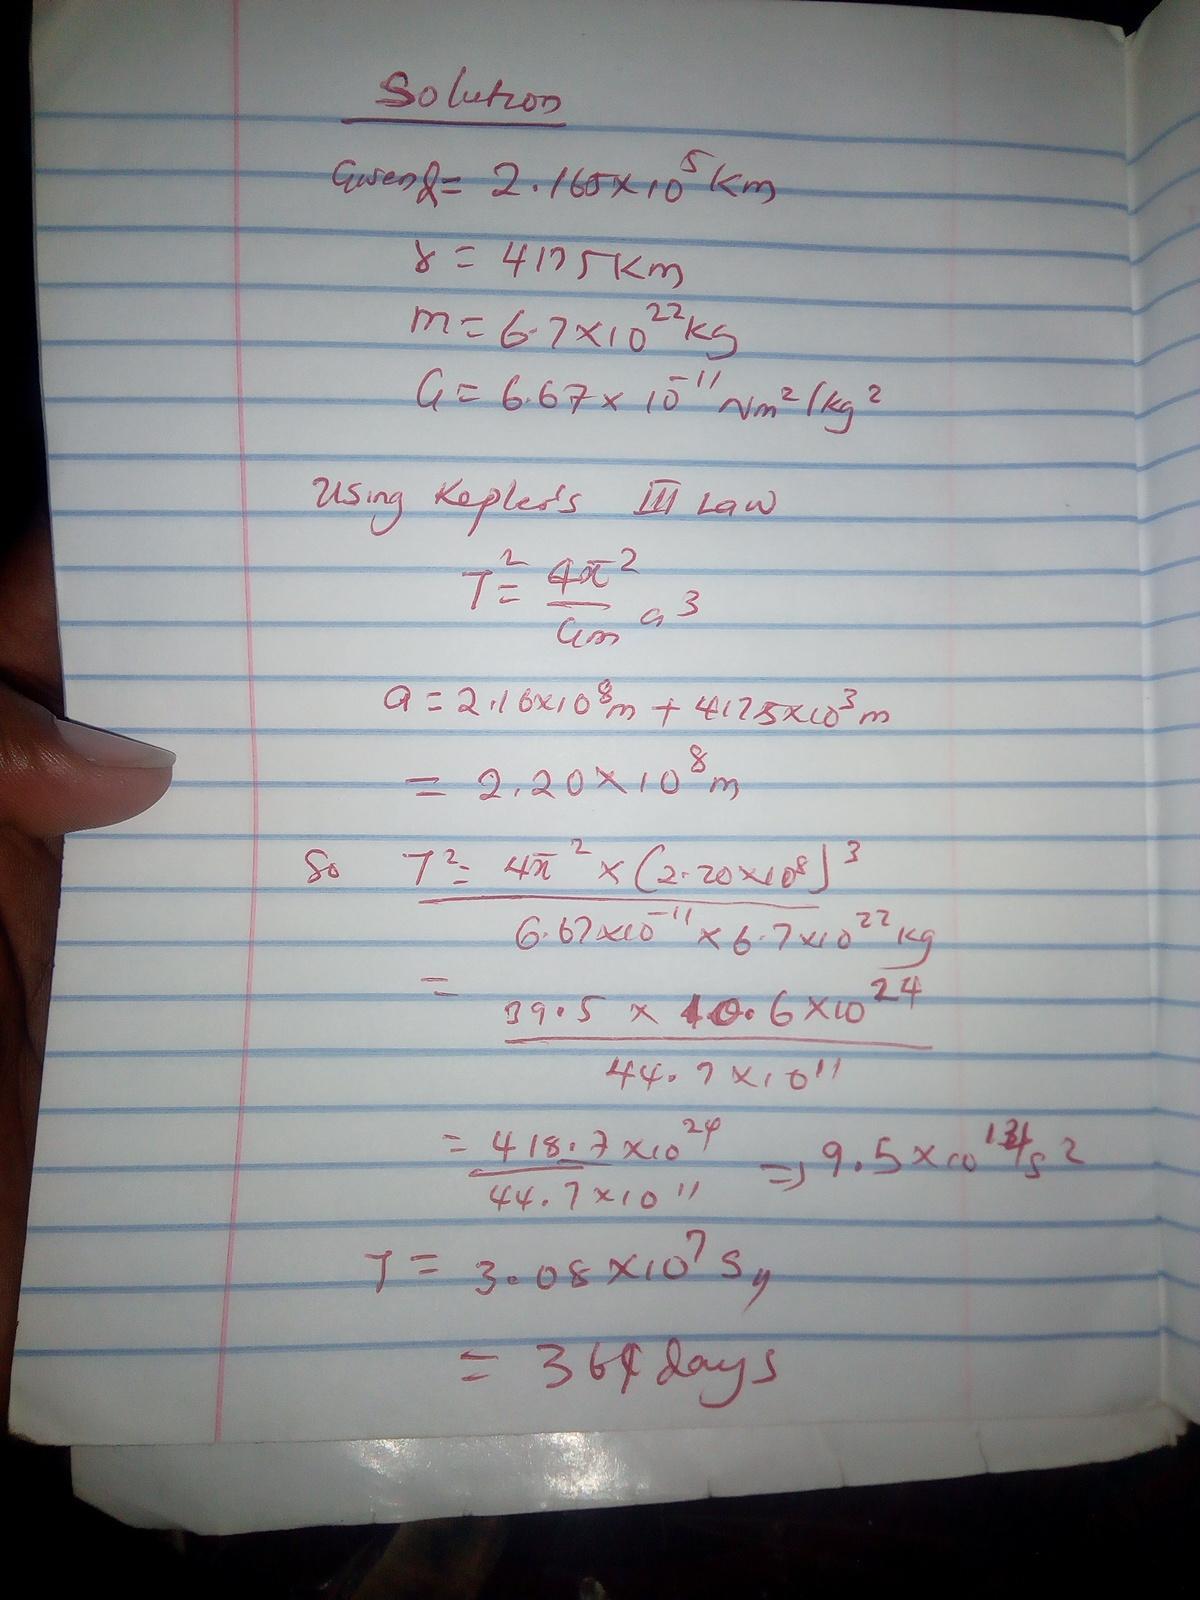 Solution
Given d = 2.165×10⁵ Km
r = 4175 Km
m = 6.7×10²² kg
G = 6.67 × 10⁻¹¹ Nm²/kg²
Using Kepler's III Law
T² = 4π²/Gm a³
a = 2.16×10⁸m + 4175×10³m
= 2.20×10⁸m
So T² = 4π² × (2.20×10⁸)³
6.67×10⁻¹¹ × 6.7×10²² kg
= 39.5 × 10.6×10²⁴
44.7×10¹¹
= 418.7×10²⁴ / 44.7×10¹¹ ⇒ 9.5×10 s²
T = 3.08×10⁷ s//
= 364 days